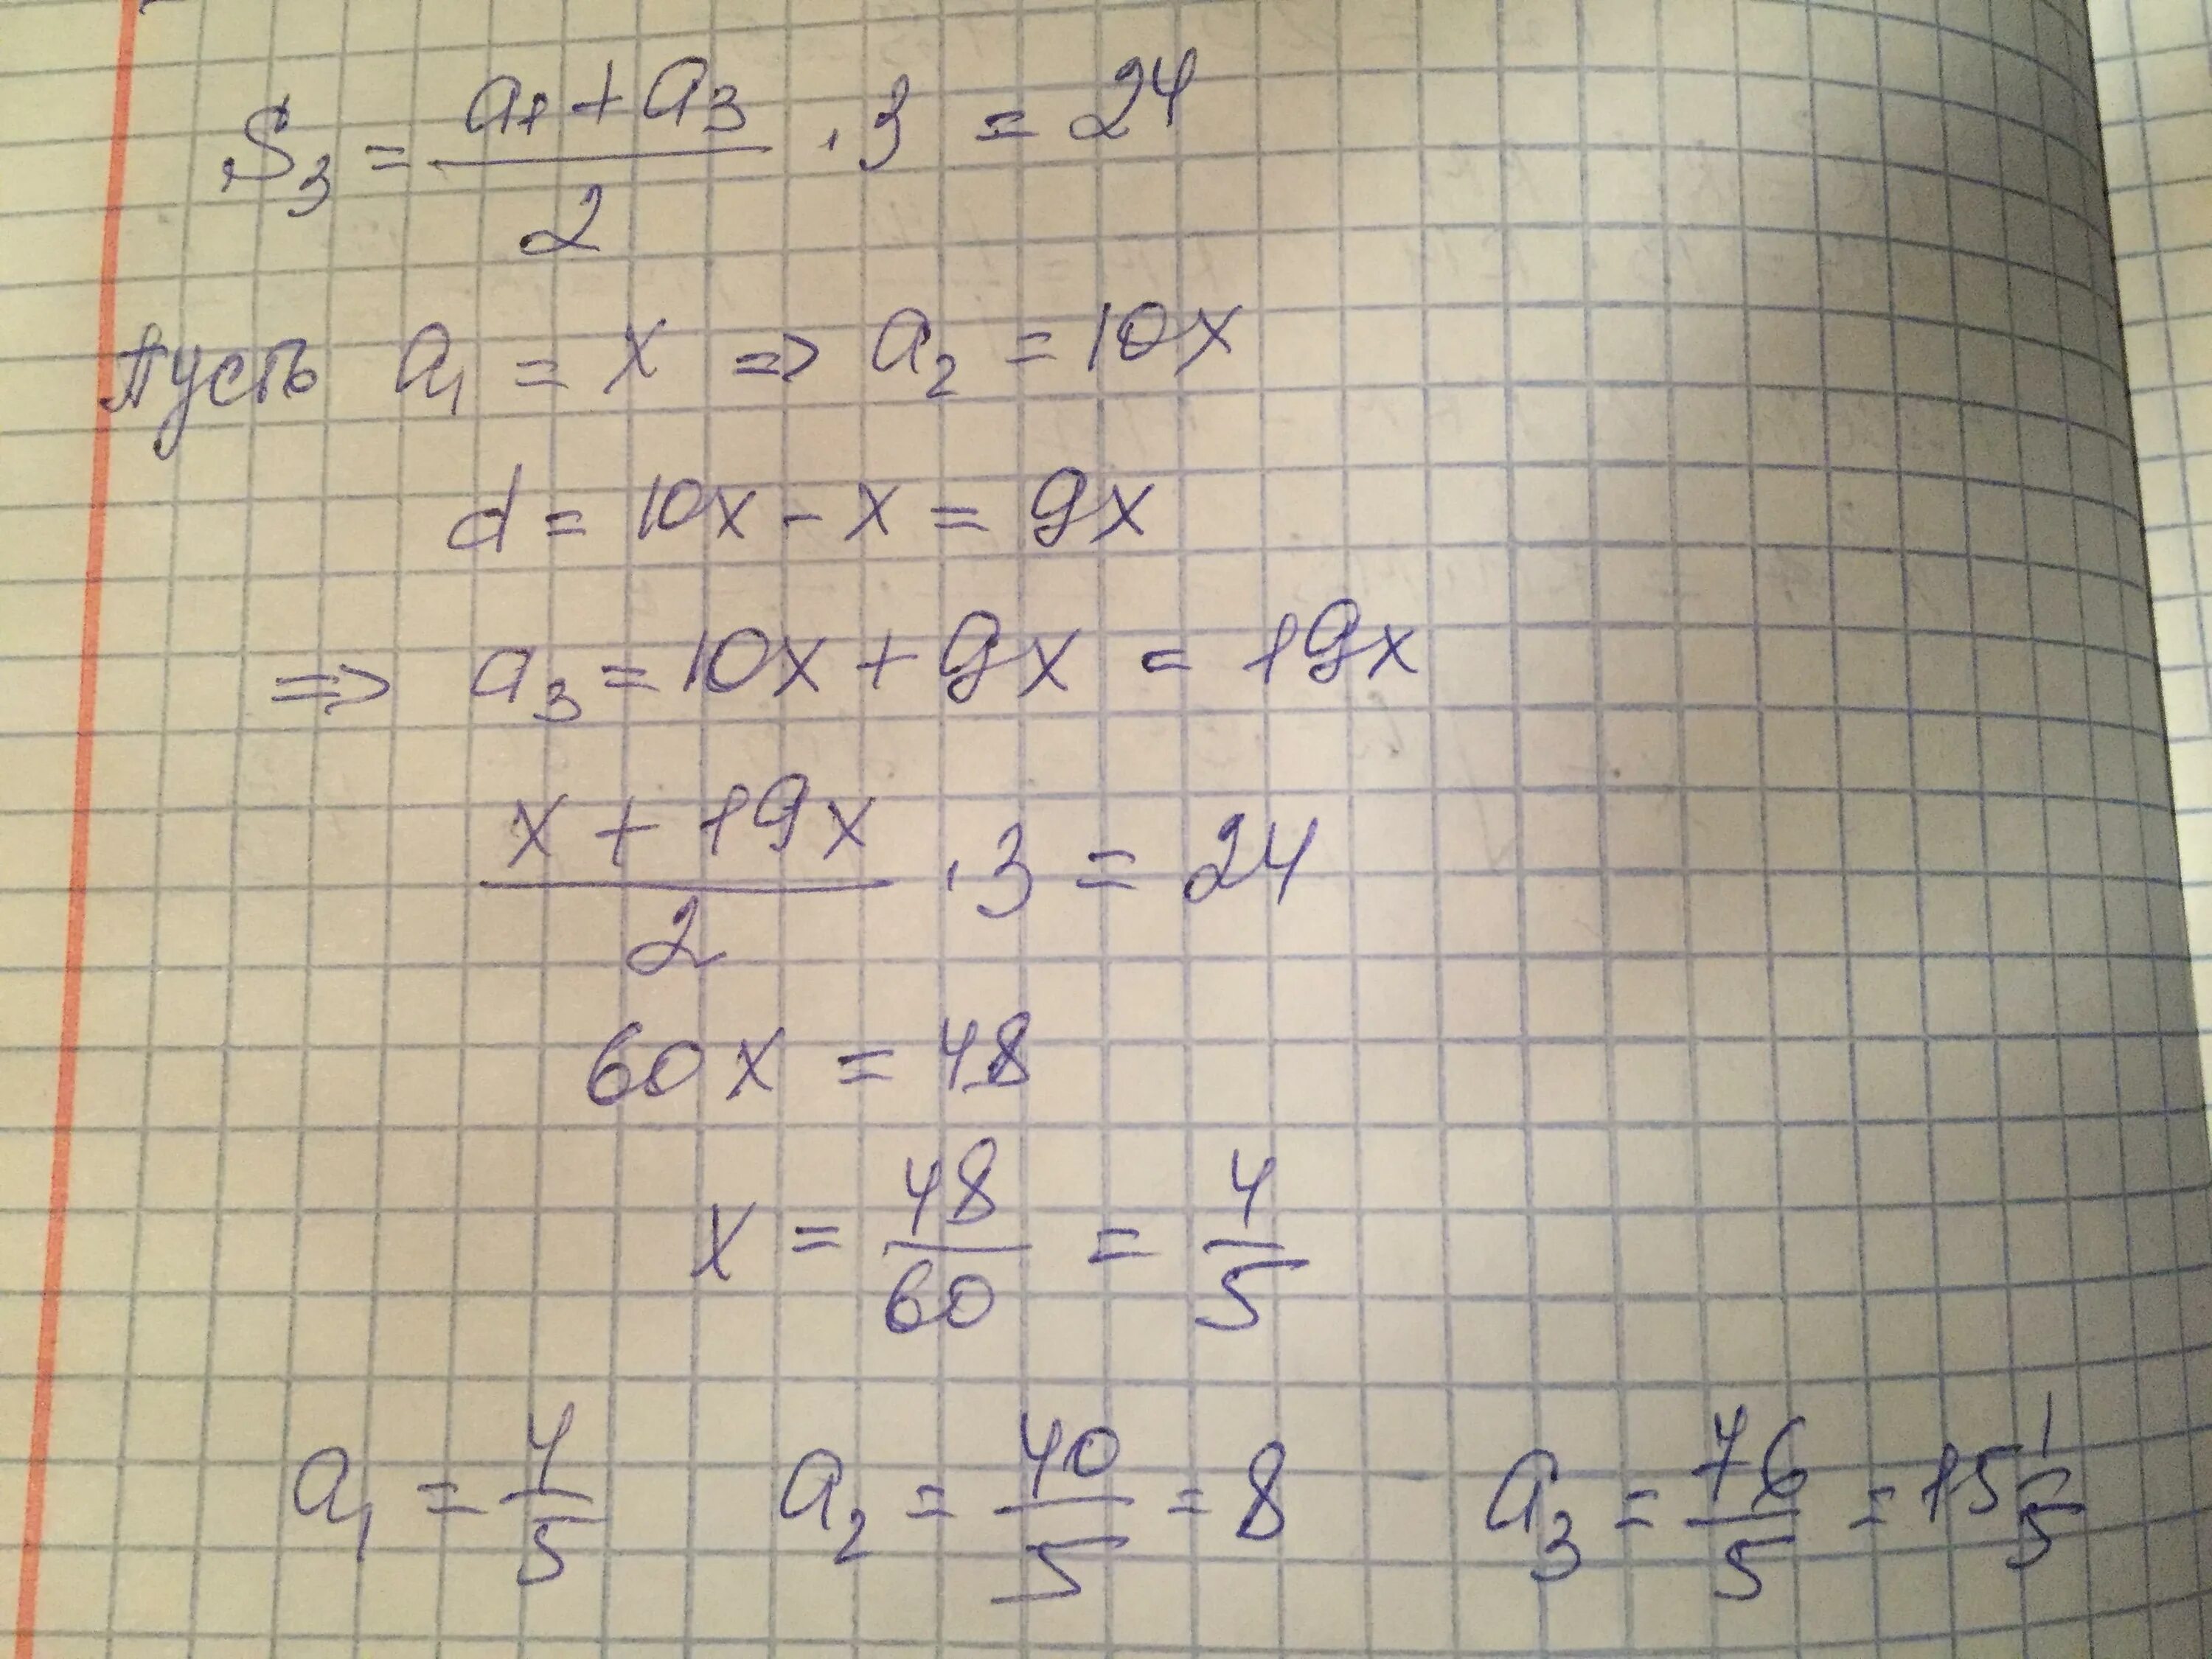 S₃ = (a₁ + a₃)/2 · 3 = 24
Пусть a₁ = x => a₂ = 10x
d = 10x - x = 9x
=> a₃ = 10x + 9x = 19x
(x + 19x)/2 · 3 = 24
60x = 48
x = 48/60 = 4/5
a₁ = 4/5 a₂ = 40/5 = 8 a₃ = 76/5 = 15 1/5